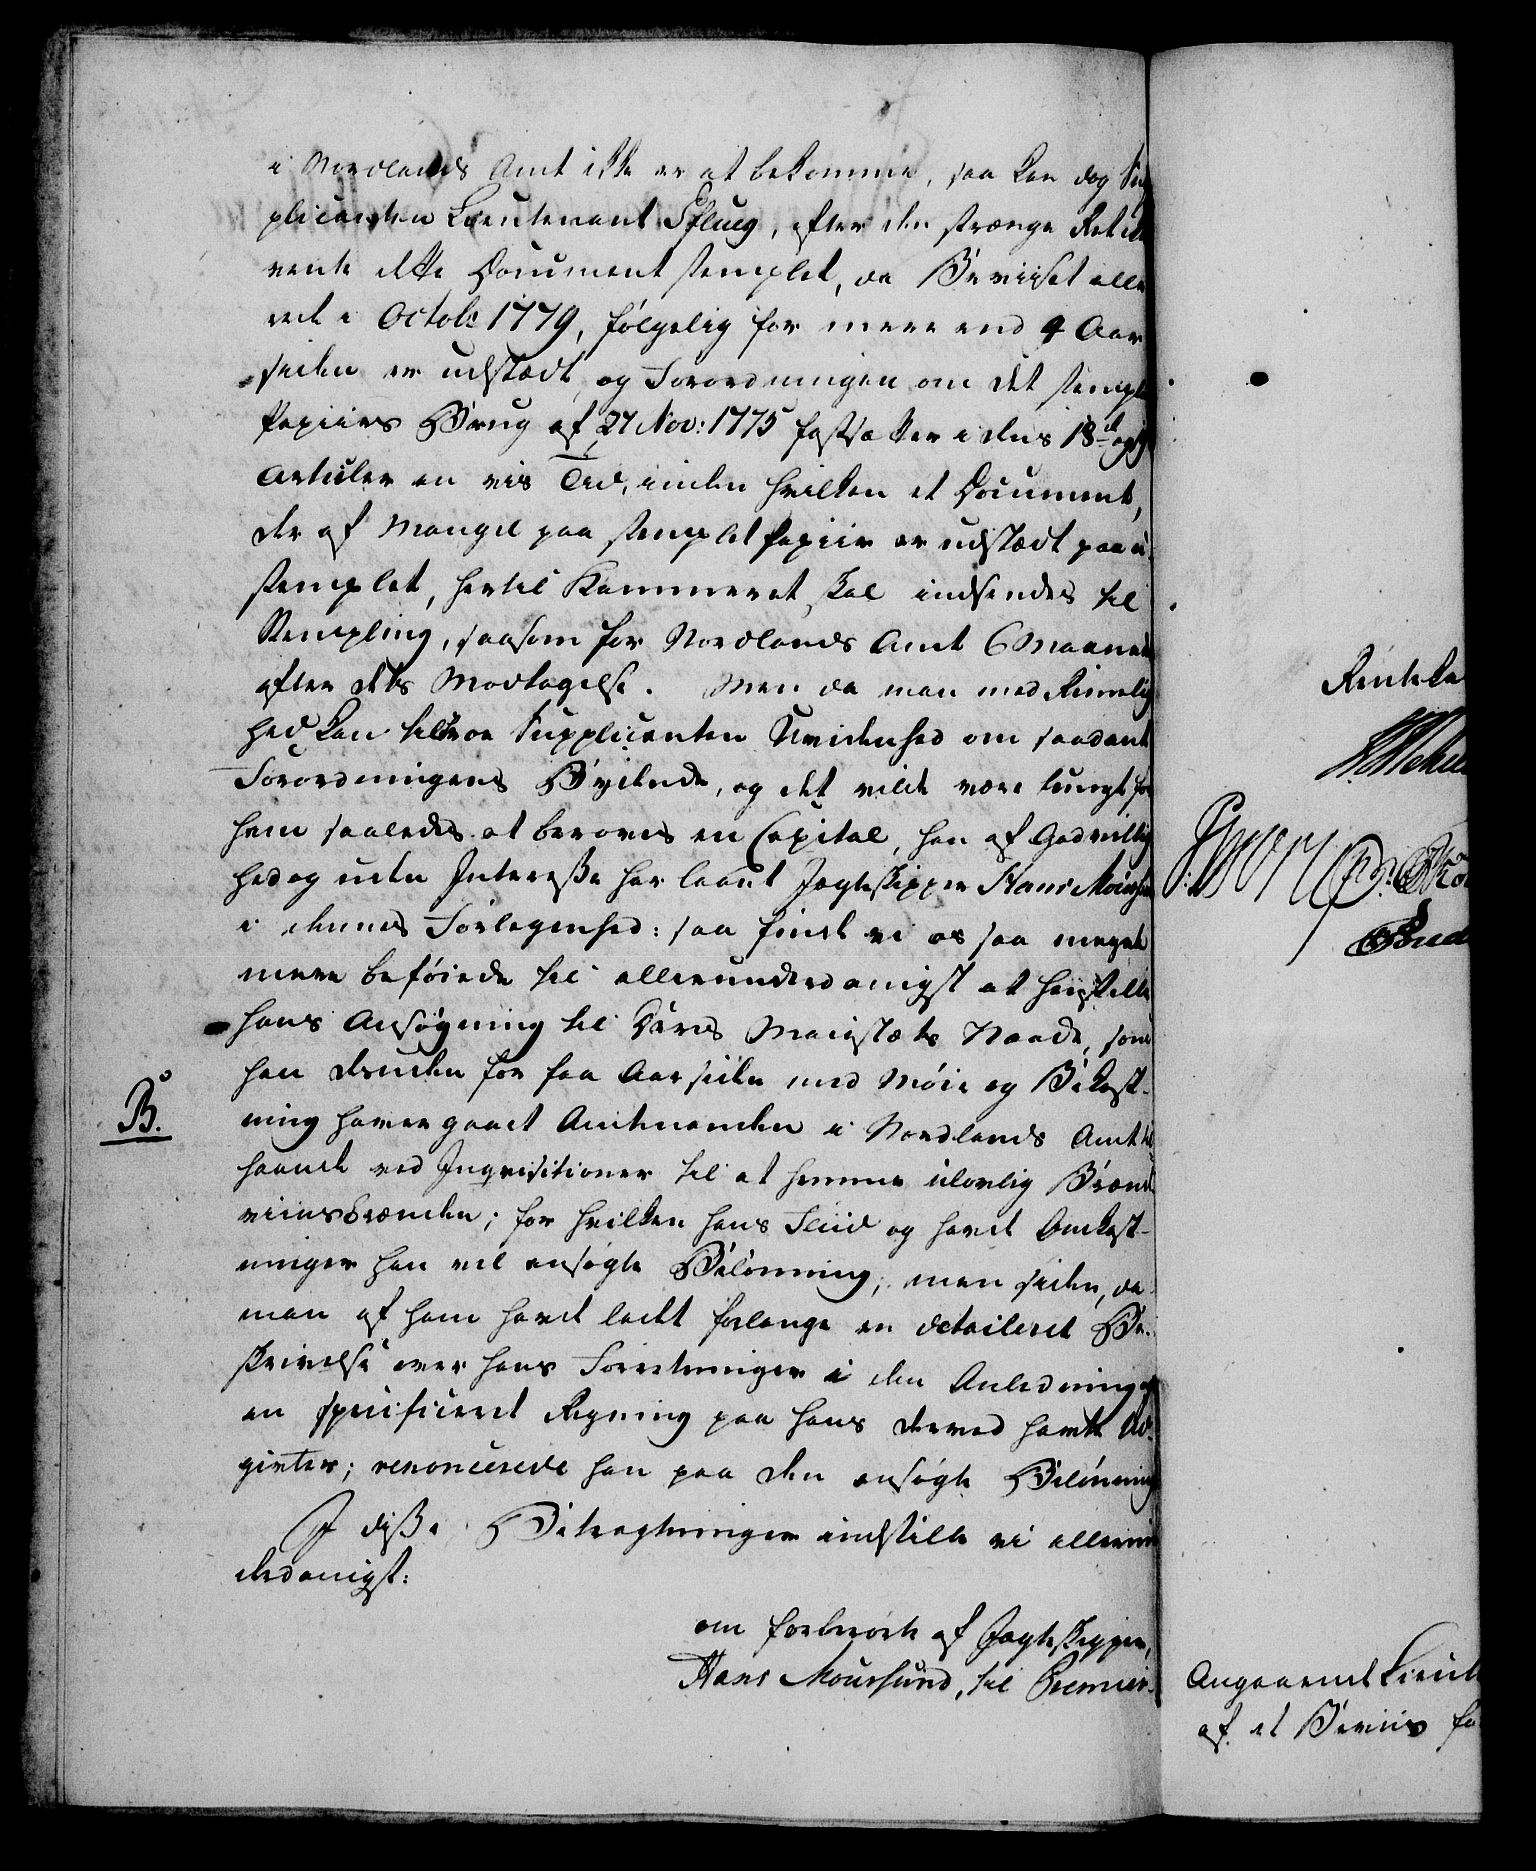 i Nordlands Amt ikke er at bekomme, saa kan dog Sup
plicanten Lieutenant Pflueg, efter den strænge Ret ei
vente dette Document stemplet, da Beviiset alle
rede i Octobr 1779, følgelig for mere end 4 Aar
siden er udstædt, og Forordningen om det stemplede
Papiirs Brug af 27 Nov: 1775 fastsætter i dens 18de og 19
Articler en vis Tid, inden hvilken et Document,
der af Mangel paa stemplet Papiir er udstædt paa u-
stemplet, hertil Kammeret skal indsendes til
Stempling, saasom for Nordlands Amt 6 Maaneder
efter dets Modtagelse. Men da man med Rimelig
hed kan tiltroe Supplicanten Uvidenhed om saadant
Forordningens Bydende, og det vilde være tungt for
ham saaledes at berøves en Capital, han af Godvillig
hed og uden Interesse har laant Jagteskipper Hans Moursund
i dennes Forlegenhed: saa finde vi os saa meget
mere beføiede til allerunderdanigst at henstille
hans Ansøgning til Deres Majestæts Naade, som
han desuden for faa Aar siden med Møie og Bekost-
ning haver gaaet Amtmanden i Nordlands Amt til
B. haande ved Inqvisitioner til at hemme ulovlig Brænde
viinsbrænden; for hvilken hans Fliid og havte Omkost-
ninger han vel ansøgte Belønning, men siden, da
man af ham havde ladet forlange en detaileret Be-
skrivelse over hans Forretninger i den Anledning og
en specificeret Regning paa hans derved havte Ud-
givter; renoncerede han paa den ansøgte Belønning
I disse Betragtninger indstille vi allerun
derdanigst:
om forberørte af Jagteskipper,
Hans Moursund, til Premier-
Renteka
Angaaende Lieut
af et Beviis fo